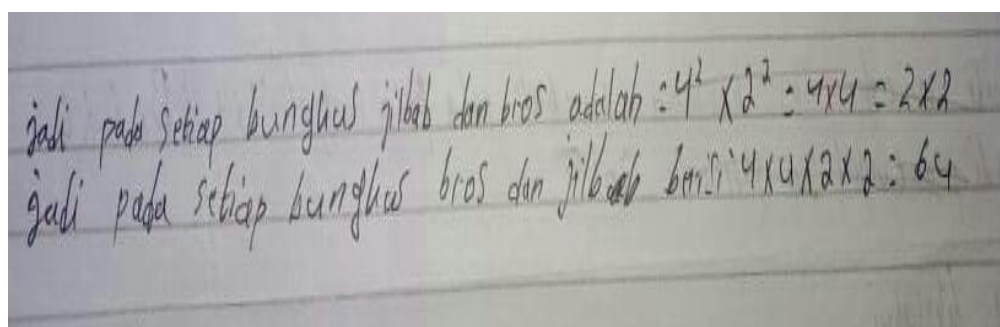 jadi pada setiap bungkus jilbab dan bros adalah : 4² x 2² = 4x4 = 2x2
jadi pada setiap bungkus bros dan jilbab berisi 4x4x2x2 = 64